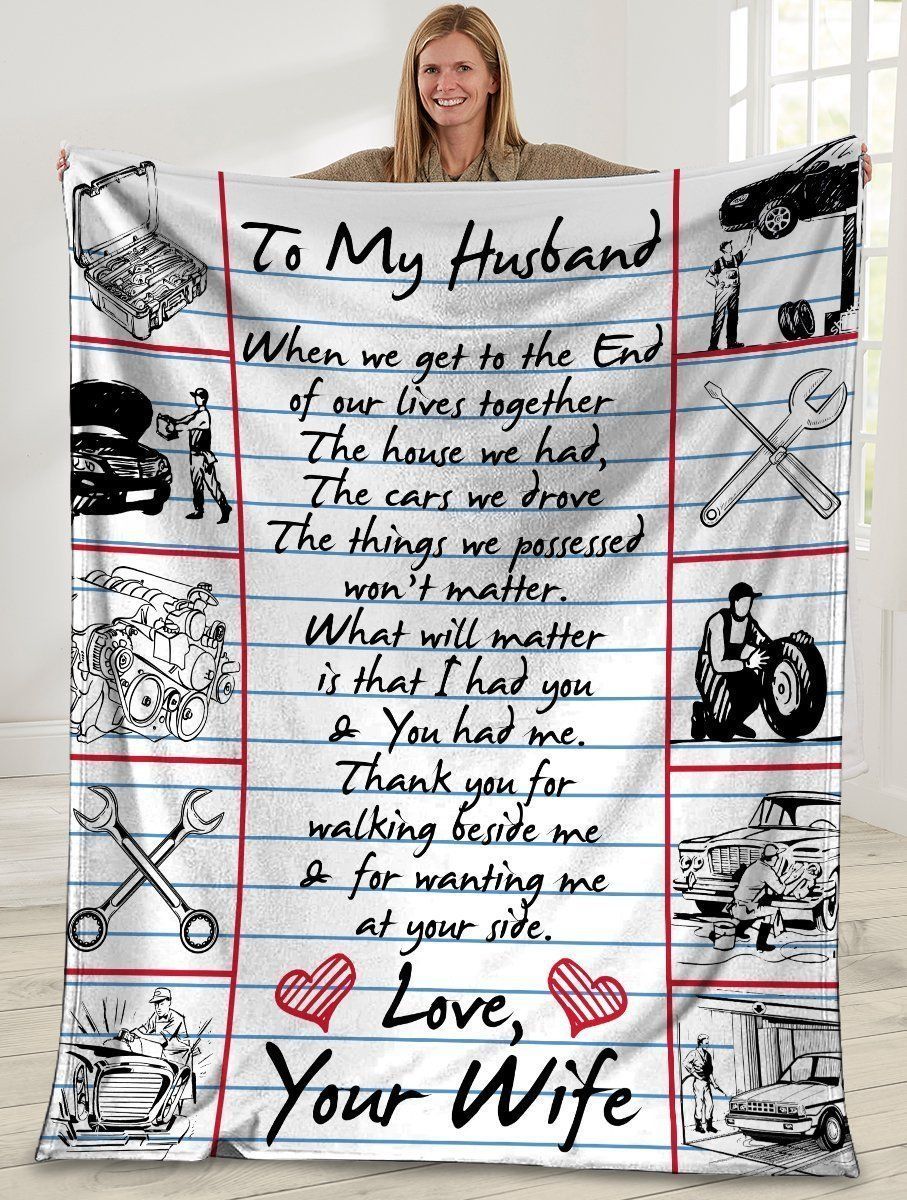 To My Husband
When we get to the End
of our lives together
The house we had,
The cars we drove
The things we possessed
won't matter.
What will matter
is that I had you
& You had me.
Thank you for
walking beside me
& for wanting me
at your side.
Love,
Your Wife